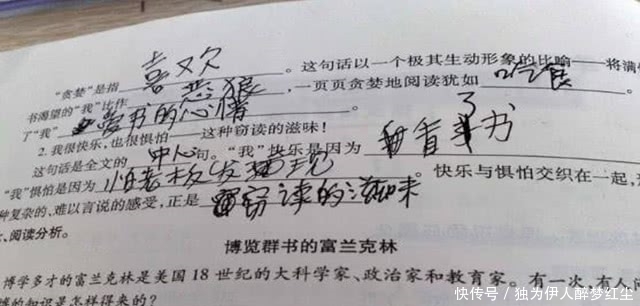 “贪婪”是指喜欢。这句话以一个极其生动形象的比喻——将满
书渴望的“我”比作恶狼,一页页贪婪地阅读犹如吃食
了“我”爱书的心情。
2. 我很快乐,也很惧怕——这种窃读的滋味!
这句话是全文的中心句。“我”快乐是因为看了书
“我”惧怕是因为怕老板发现。快乐与惧怕交织在一起,
种复杂的、难以言说的感受,正是窃读的滋味
、阅读分析。
博览群书的富兰克林
博学多才的富兰克林是美国18世纪的大科学家、政治家和教育家。有一次,有人
的知识是怎样得来的?
快传号/独为伊人醉梦红尘